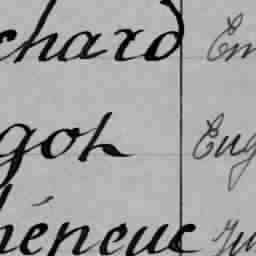 chard Em
got Eug
héneuc Ju